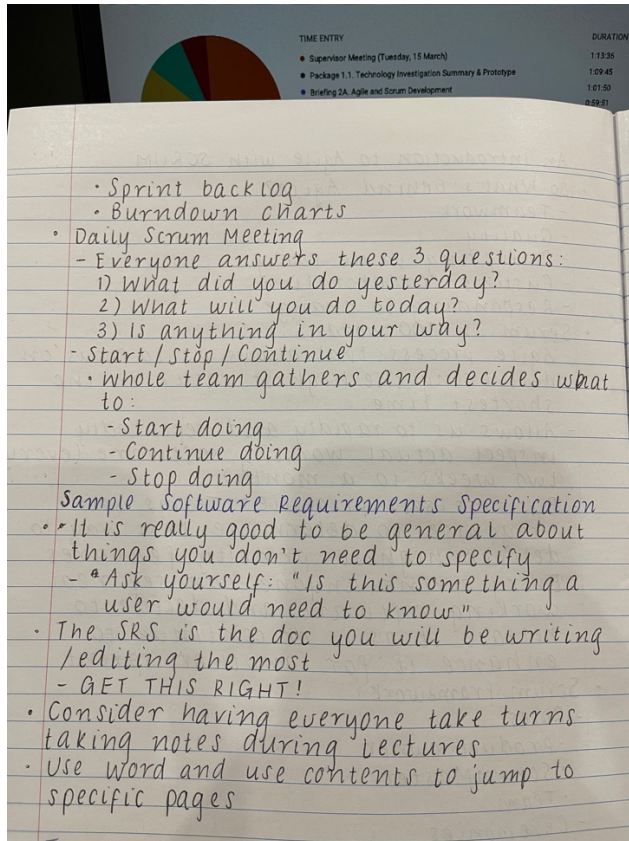 TIME ENTRY DURATION
• Supervisor Meeting (Tuesday, 15 March) 1:13:35
• Package 1.1. Technology Investigation Summary & Prototype 1:09:45
• Briefing 2A. Agile and Scrum Development 1:01:50
0:59:51
• Sprint backlog
• Burndown charts
• Daily Scrum Meeting
- Everyone answers these 3 questions:
1) What did you do yesterday?
2) What will you do today?
3) Is anything in your way?
- Start / Stop / Continue
• Whole team gathers and decides what
to:
- Start doing
- Continue doing
- Stop doing
Sample Software Requirements Specification
• It is really good to be general about
things you don't need to specify
- Ask yourself: "Is this something a
user would need to know"
• The SRS is the doc you will be writing
/editing the most
- GET THIS RIGHT!
• Consider having everyone take turns
taking notes during lectures
• Use Word and use contents to jump to
specific pages